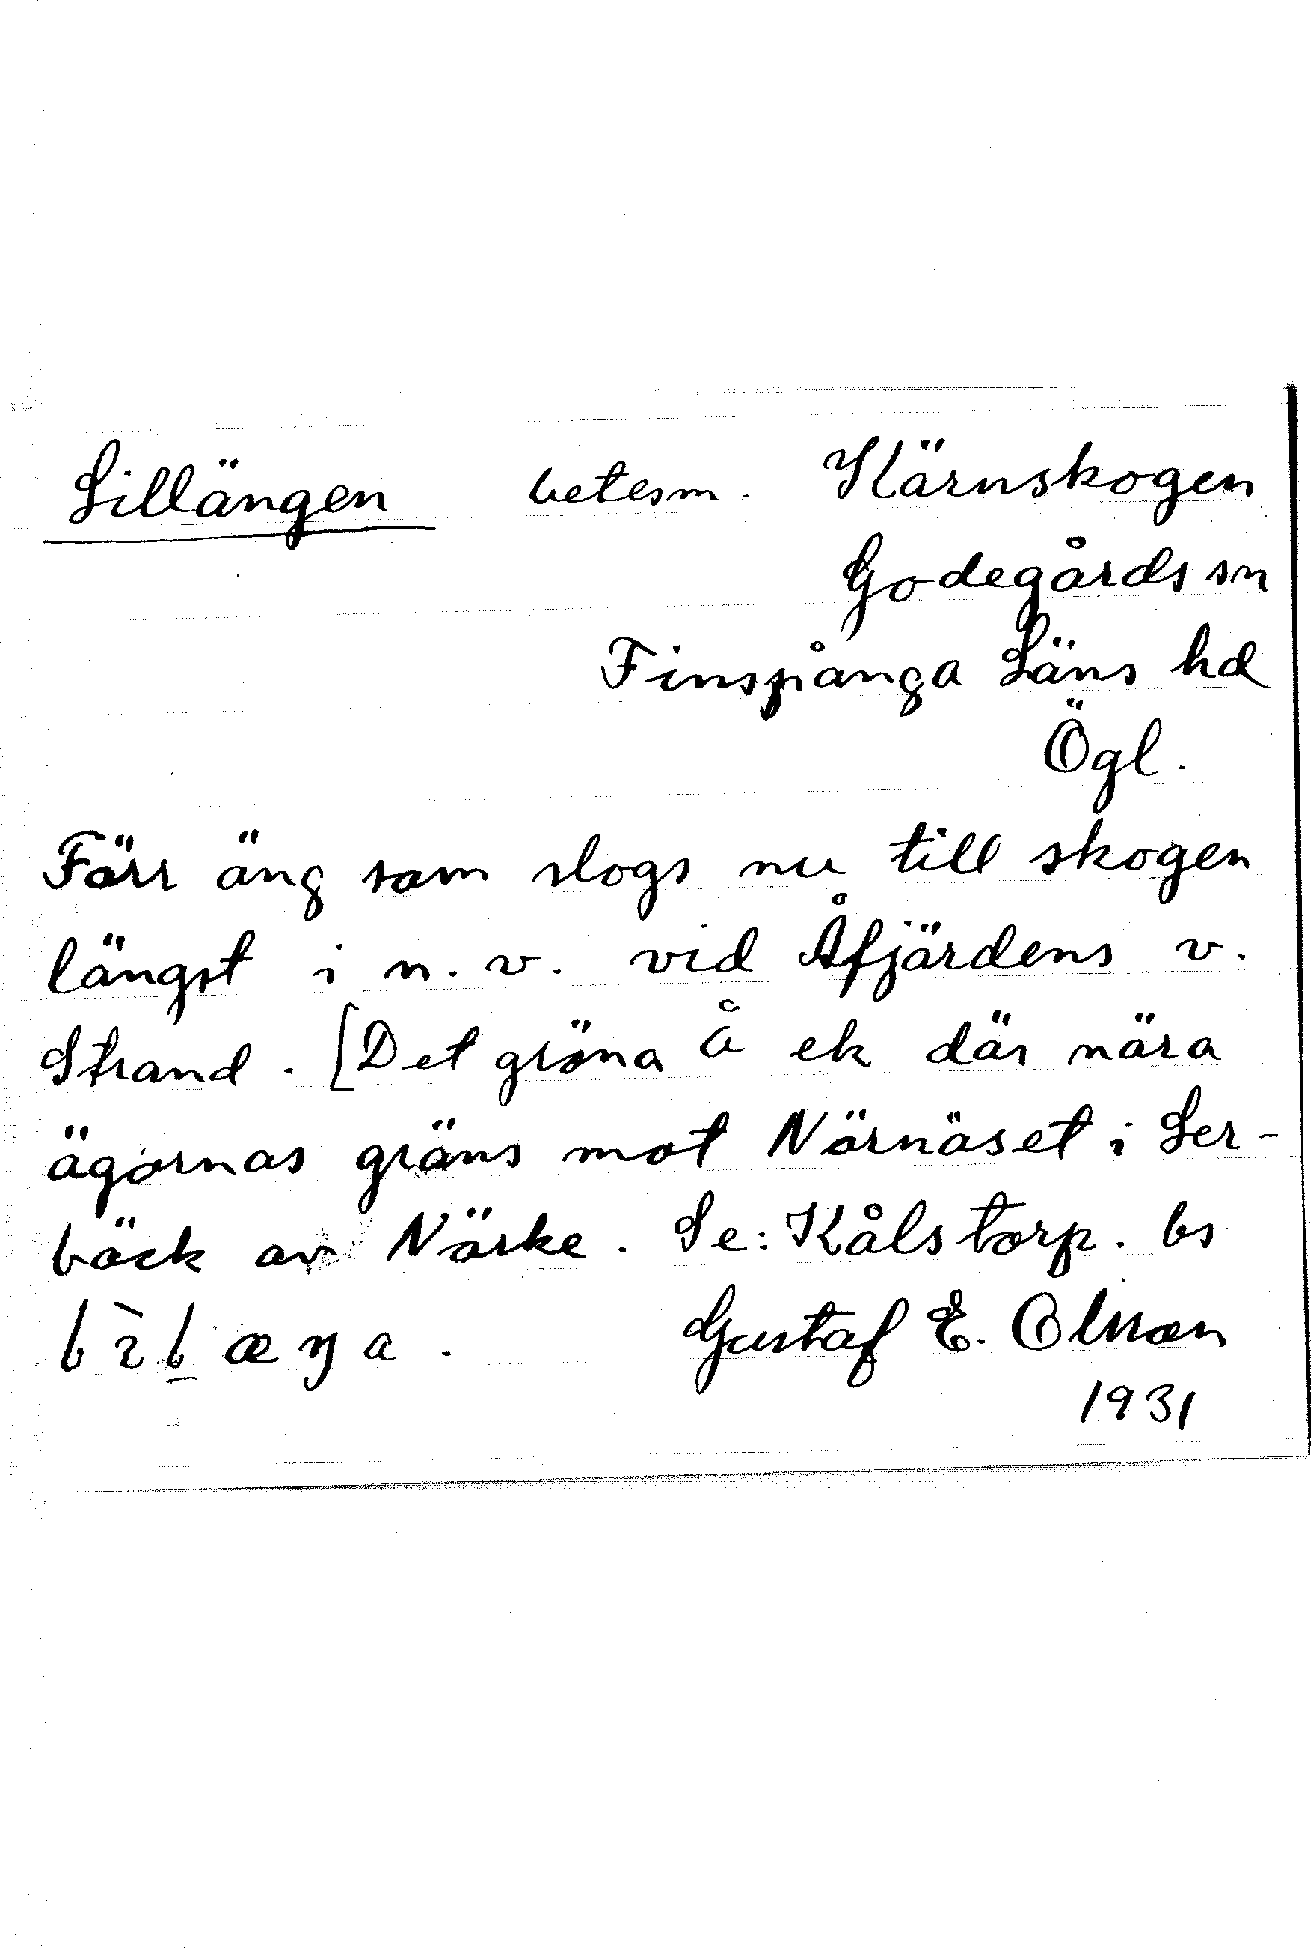 Lillängen betesm. Kärnskogen
Godegårds sn
Finspånga Läns hd
Ögl.
Förr äng som slogs nu till skogen
längst i n. v. vid Åfjärdens v.
Strand. [Det gröna å ek där nära
ägornas gräns mot Nörnäset i Ler-
bäck av Närke. Se: Kålstorp. bs
Gustaf E. Olsson
1931